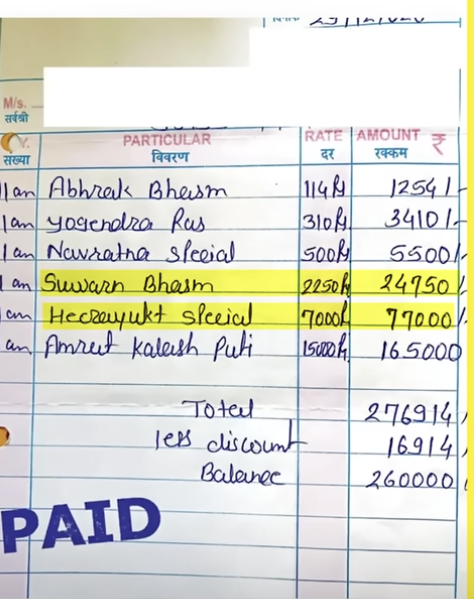 M/s.
सर्वश्री
PARTICULAR RATE AMOUNT ₹
संख्या विवरण दर रक्कम
11 an Abhrak Bhasm 114 Rs 1254/-
1 an Yogendra Ras 310 Rs 3410/-
1 an Navratna special 500 Rs 5500/-
an Suwarn Bhasm 2250 Rs 24750/-
an Heerayukt special 7000 Rs 77000/-
an Amrut Kalash Puti 15000 Rs 165000
Total 276914/
less discount 16914/
Balance 260000/
PAID